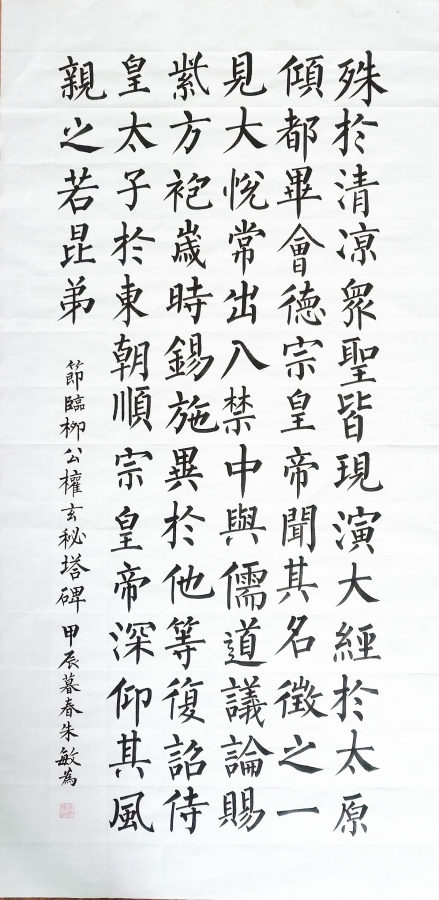 殊於清凉眾聖皆現演大經於太原
傾都畢會德宗皇帝聞其名徵之一
見大悅常出入禁中與儒道議論賜
紫方袍歲時錫施異於他等復詔侍
皇太子於東朝順宗皇帝深仰其風
親之若昆弟
節臨柳公權玄秘塔碑 甲辰暮春朱敏為